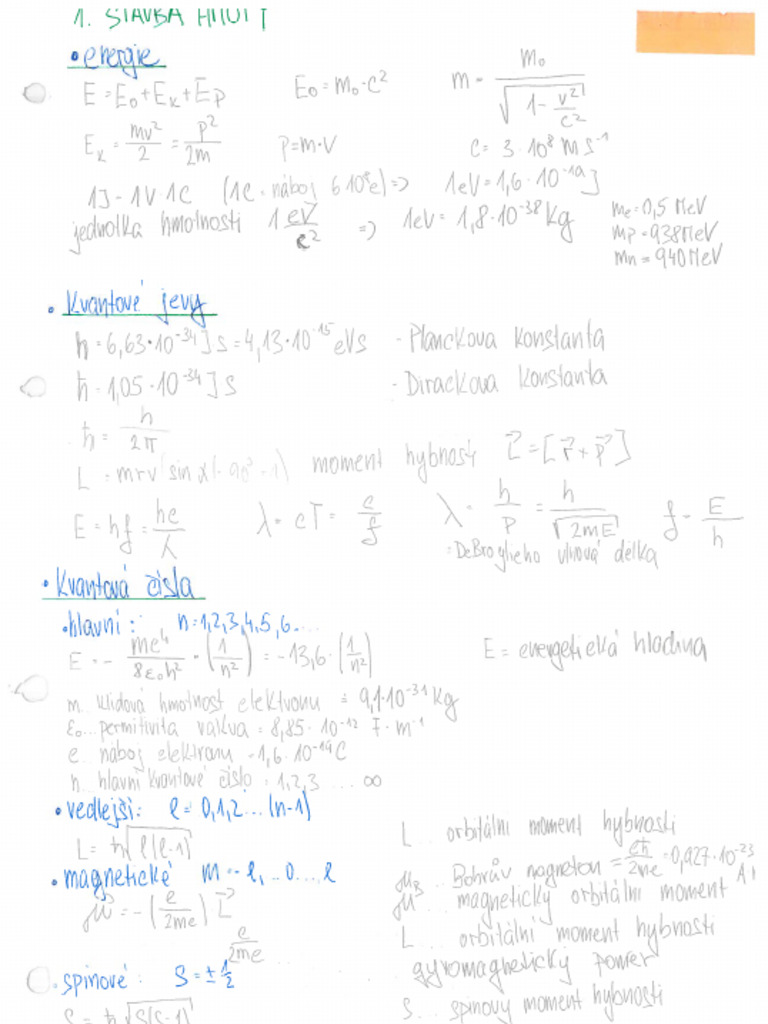 1. STAVBA HMOTY
• energie
E = E₀ + Eₖ + Eₚ   E₀ = m₀ · c²   m = m₀ / √(1 - v²/c²)
Eₖ = mv²/2 = p²/2m   p = m · v   c = 3 · 10⁸ m s⁻¹
1J = 1V · 1C (1C = náboj 6 · 10¹⁸e) => 1eV = 1,6 · 10⁻¹⁹ J
jednotka hmotnosti 1 eV/c² => 1eV = 1,8 · 10⁻³⁸ kg
mₑ = 0,5 MeV
mₚ = 938 MeV
mₙ = 940 MeV
• Kvantové jevy
h = 6,63 · 10⁻³⁴ J s = 4,13 · 10⁻¹⁵ eVs - Planckova konstanta
ħ = 1,05 · 10⁻³⁴ J s - Dirackova konstanta
ħ = h / 2π
L = mrv sin α (= 90° = 1) moment hybnosti L⃗ = [r⃗ + p⃗]
E = hf = hc/λ   λ = cT = c/f   λ = h/p = h/√2mE   f = E/h
= DeBroglieho vlnová délka
• Kvantová čísla
• hlavní: n = 1,2,3,4,5,6...
E = - me⁴/8ε₀h² · (1/n²) = -13,6 · (1/n²)   E = energetická hladina
m... klidová hmotnost elektronu = 9,1 · 10⁻³¹ kg
ε₀... permitivita vakua = 8,85 · 10⁻¹² F · m⁻¹
e náboj elektronu -1,6 · 10⁻¹⁹ C
n hlavní kvantové číslo = 1,2,3 ... ∞
• vedlejší: ℓ = 0,1,2...(n-1)
L = ħ√ℓ(ℓ-1)
L orbitální moment hybnosti
• magnetické m = -ℓ, ..0... ℓ
μ_B ... Bohrův magneton = eħ/2me = 0,927 · 10⁻²³
μ⃗ = - (e/2me) L⃗
μ ... magnetický orbitální moment
L ... orbitální moment hybnosti
e/2me gyromagnetický poměr
• spinové: S = ± 1/2
s... spinový moment hybnosti
S = ħ√s(s-1)